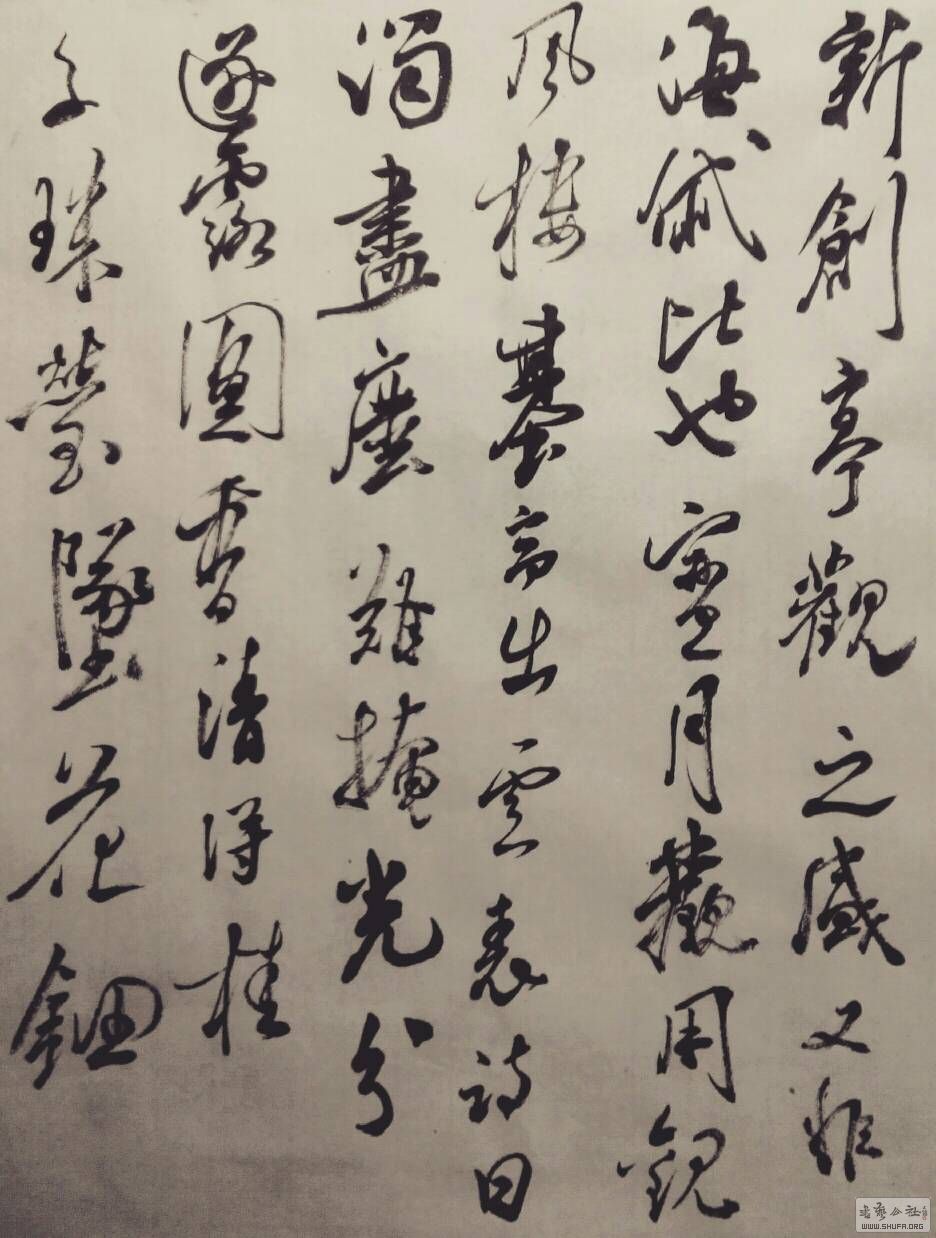 新創亭觀之盛又非
海岱比也月用
風樓臺高出雲表詩曰
盡塵難掩光分
露圓香清得桂
子珠瑩墜花鈿
書藝公社
WWW.SHUFA.ORG